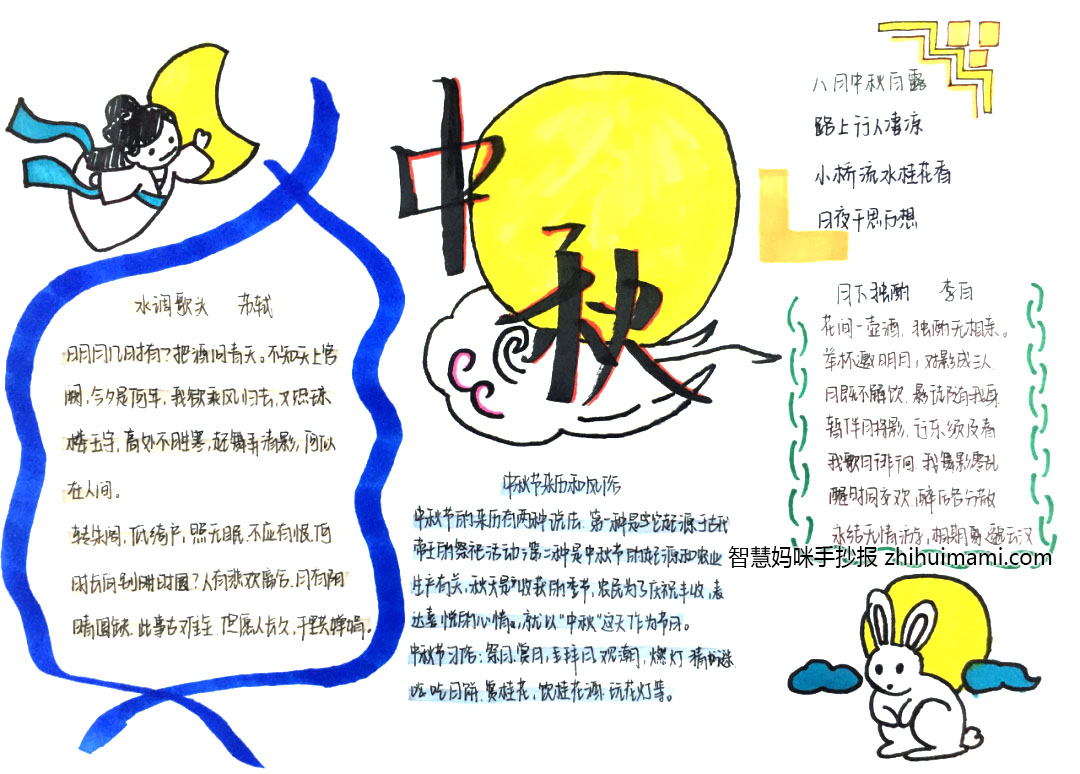 中秋
八月中秋白露
路上行人凄凉
小桥流水桂花香
日夜千思万想
水调歌头 苏轼
明月几时有？把酒问青天。不知天上宫
阙，今夕是何年，我欲乘风归去，又恐琼
楼玉宇，高处不胜寒，起舞弄清影，何似
在人间。
转朱阁，低绮户，照无眠，不应有恨，何
时长向别时圆？人有悲欢离合，月有阴
晴圆缺，此事古难全，但愿人长久，千里共婵娟。
中秋节来历和风俗
中秋节的来历有两种说法，第一种是它起源于古代
帝王的祭祀活动；第二种是中秋节的起源和农业
生产有关，秋天是收获的季节，农民为了庆祝丰收，表
达喜悦的心情。就以“中秋”这天作为节日。
中秋节习俗：祭月、赏月、走拜月、观潮、燃灯、猜
吃月饼、赏桂花、饮桂花酒、玩花灯等。
月下独酌 李白
花间一壶酒，独酌无相亲。
举杯邀明月，对影成三人
月既不解饮，影徒随我身
暂伴月将影，行乐须及春
我歌月徘徊，我舞影零乱
醒时同交欢，醉后各分散
永结无情游，相期邈云汉
智慧妈咪手抄报 zhihuimami.com